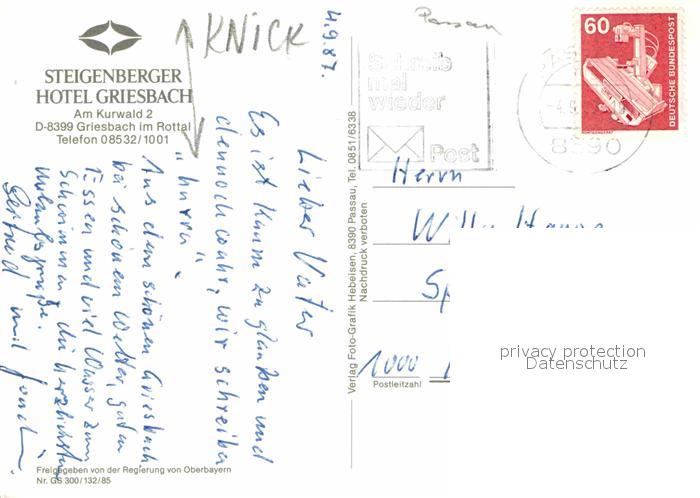 STEIGENBERGER
HOTEL GRIESBACH
Am Kurwald 2
D-8399 Griesbach im Rottal
Telefon 08532/1001
KNICK
4.9.87.
Lieber Vater
Es ist kaum zu glauben und
dennoch wahr, wir schreiben
"hurra".
Aus dem schönen Griesbach
bei schönem Wetter, guten
Essen und viel Wasser zum
Schwimmen die herzlichsten
Urlaubsgrüße.
Gertrud und
Freigegeben von der Regierung von Oberbayern
Nr. GS 300/132/85
Verlag Foto-Grafik Hebeisen, 8390 Passau, Tel. 0851/6338
Nachdruck verboten
Passau
Schreib
mal
wieder
Post
8390
60
DEUTSCHE BUNDESPOST
Herrn
1000
Postleitzahl
privacy protection
Datenschutz